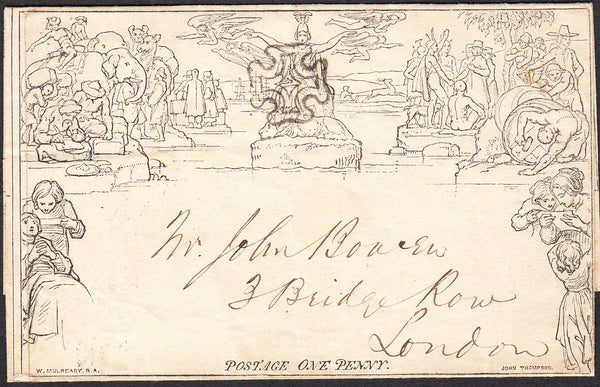 Mr. John Bowen
3 Bridge Row
London
POSTAGE ONE PENNY.
W. MULREADY, R.A.
JOHN THOMPSON.